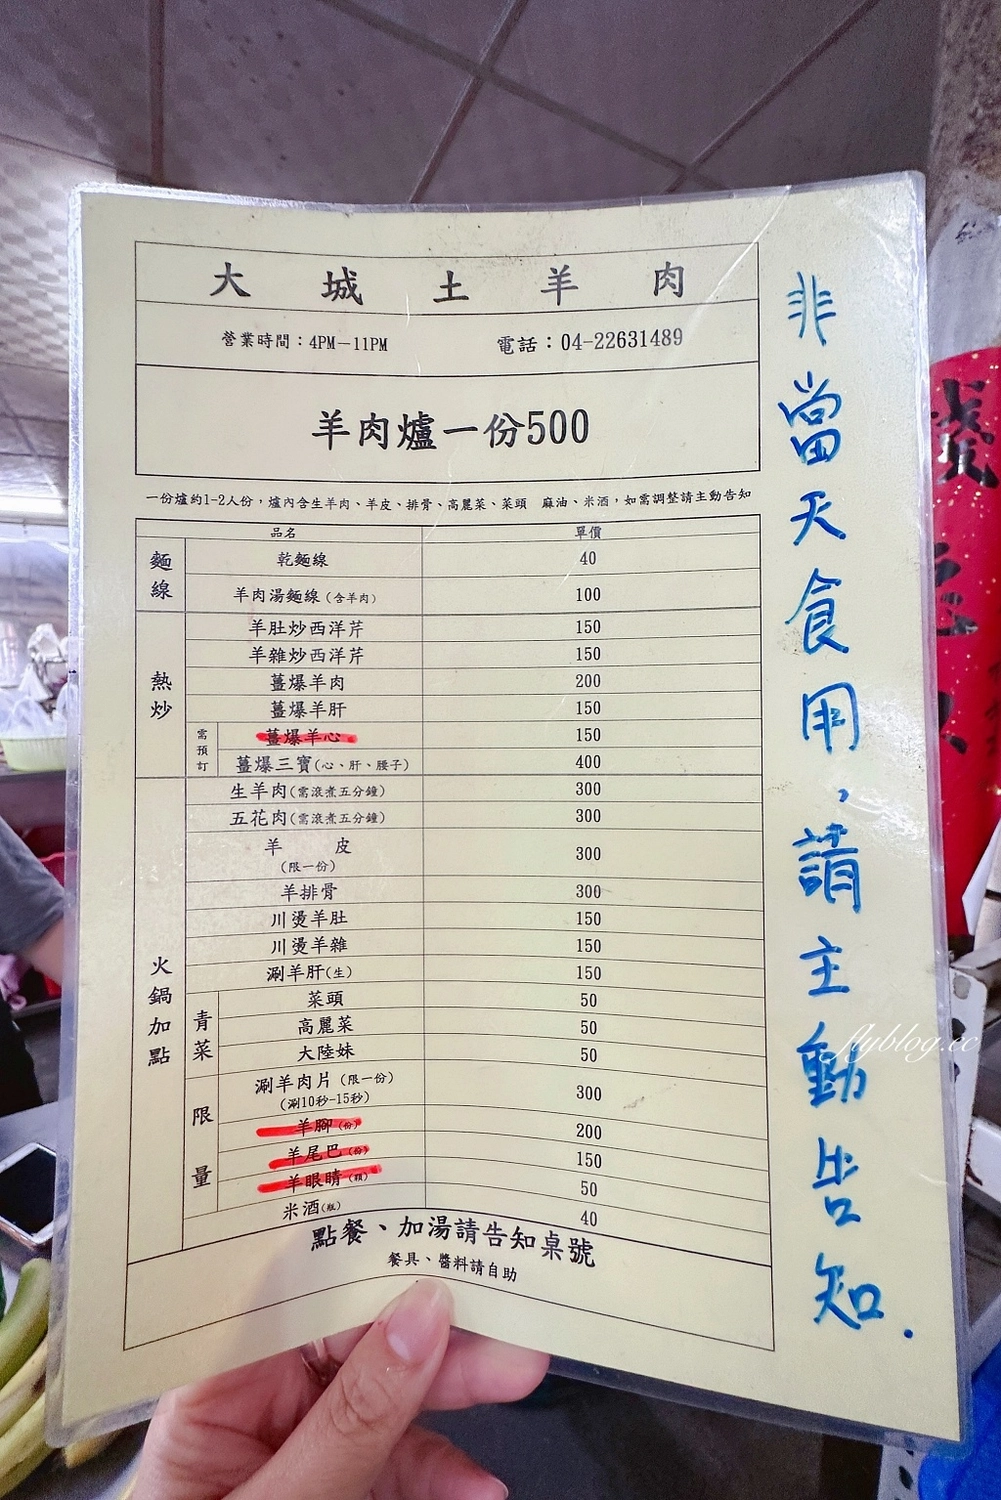 大城土羊肉
營業時間：4PM－11PM 電話：04-22631489
羊肉爐一份500
一份爐約1-2人份，爐內含生羊肉、羊皮、排骨、高麗菜、菜頭 麻油、米酒，如需調整請主動告知
品名 單價
麵線
乾麵線 40
羊肉湯麵線(含羊肉) 100
熱炒
羊肚炒西洋芹 150
羊雜炒西洋芹 150
薑爆羊肉 200
薑爆羊肝 150
需預訂
薑爆羊心 150
薑爆三寶(心、肝、腰子) 400
火鍋加點
生羊肉(需滾煮五分鐘) 300
五花肉(需滾煮五分鐘) 300
羊皮
(限一份) 300
羊排骨 300
川燙羊肚 150
川燙羊雜 150
涮羊肝(生) 150
青菜
菜頭 50
高麗菜 50
大陸妹 50
限量
涮羊肉片(限一份)
(涮10秒-15秒) 300
羊腳(份) 200
羊尾巴(份) 150
羊眼睛(顆) 50
米酒(瓶) 40
點餐、加湯請告知桌號
餐具、醬料請自助
非當天食用，請主動告知.
flyblog.cc